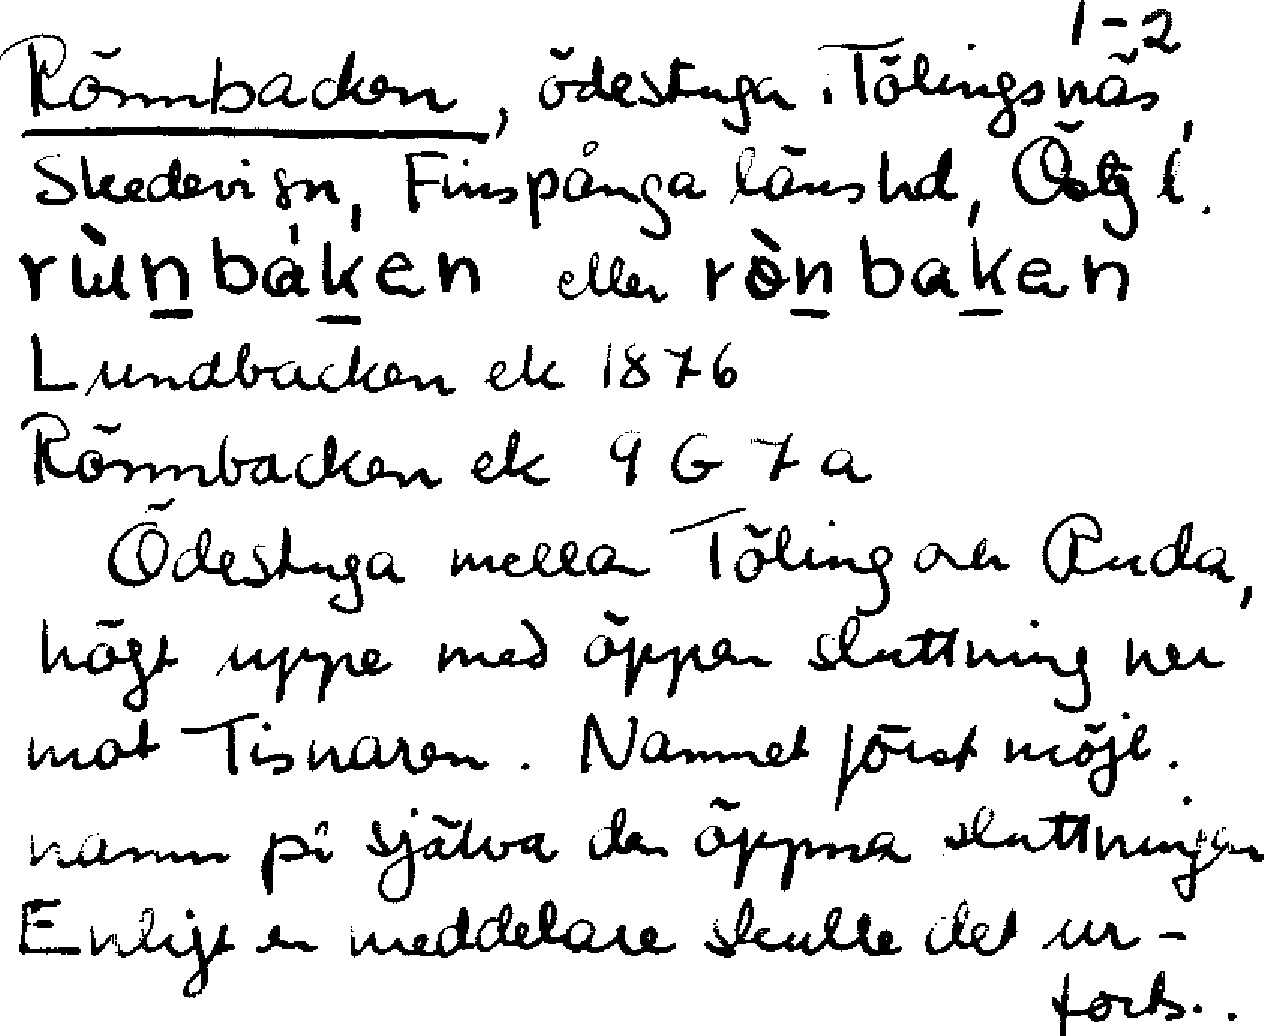 1-2
Rönnbacken, ödestuga i Tölingsnäs,
Skedevi sn, Finspånga läns hd, Östg l.
rùn bá́ken eller ròn baken
Lundbacken ek 1876
Rönnbacken ek 9 G 7 a
Ödestuga mellan Töling och Ruda,
högt uppe med öppen sluttning ner
mot Tisnaren. Namnet först möjl.
namn på själva den öppna sluttningen
Enligt en meddelare skulle det ur-
forts..